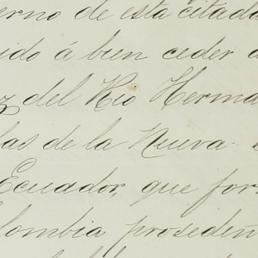 erno de esta citada
ido á bien ceder a
z del Rio Herma
las de la Nueva
Ecuador, que for
lombia proseden